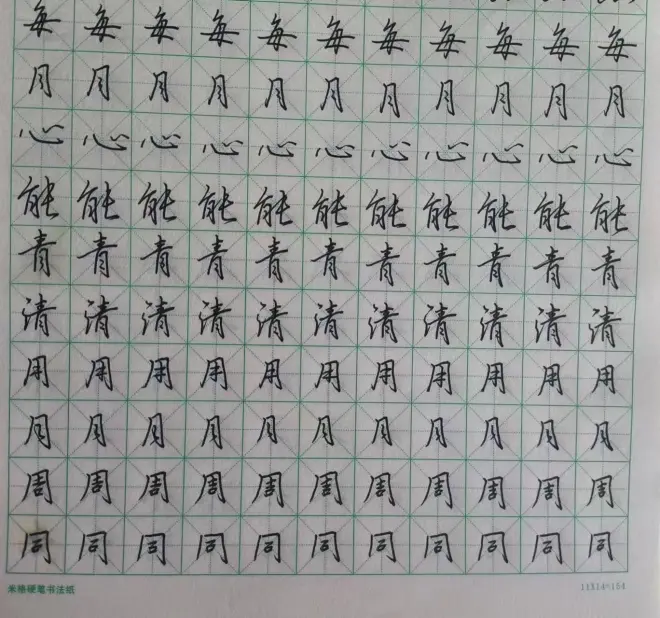 每每每每每每每每每每每
月月月月月月月月月月月
心心心心心心心心心心心
能能能能能能能能能能能
青青青青青青青青青青青
清清清清清清清清清清清
用用用用用用用用用用用
月月月月月月月月月月月
周周周周周周周周周周周
同同同同同同同同同同同
米格硬笔书法纸 11X14=154